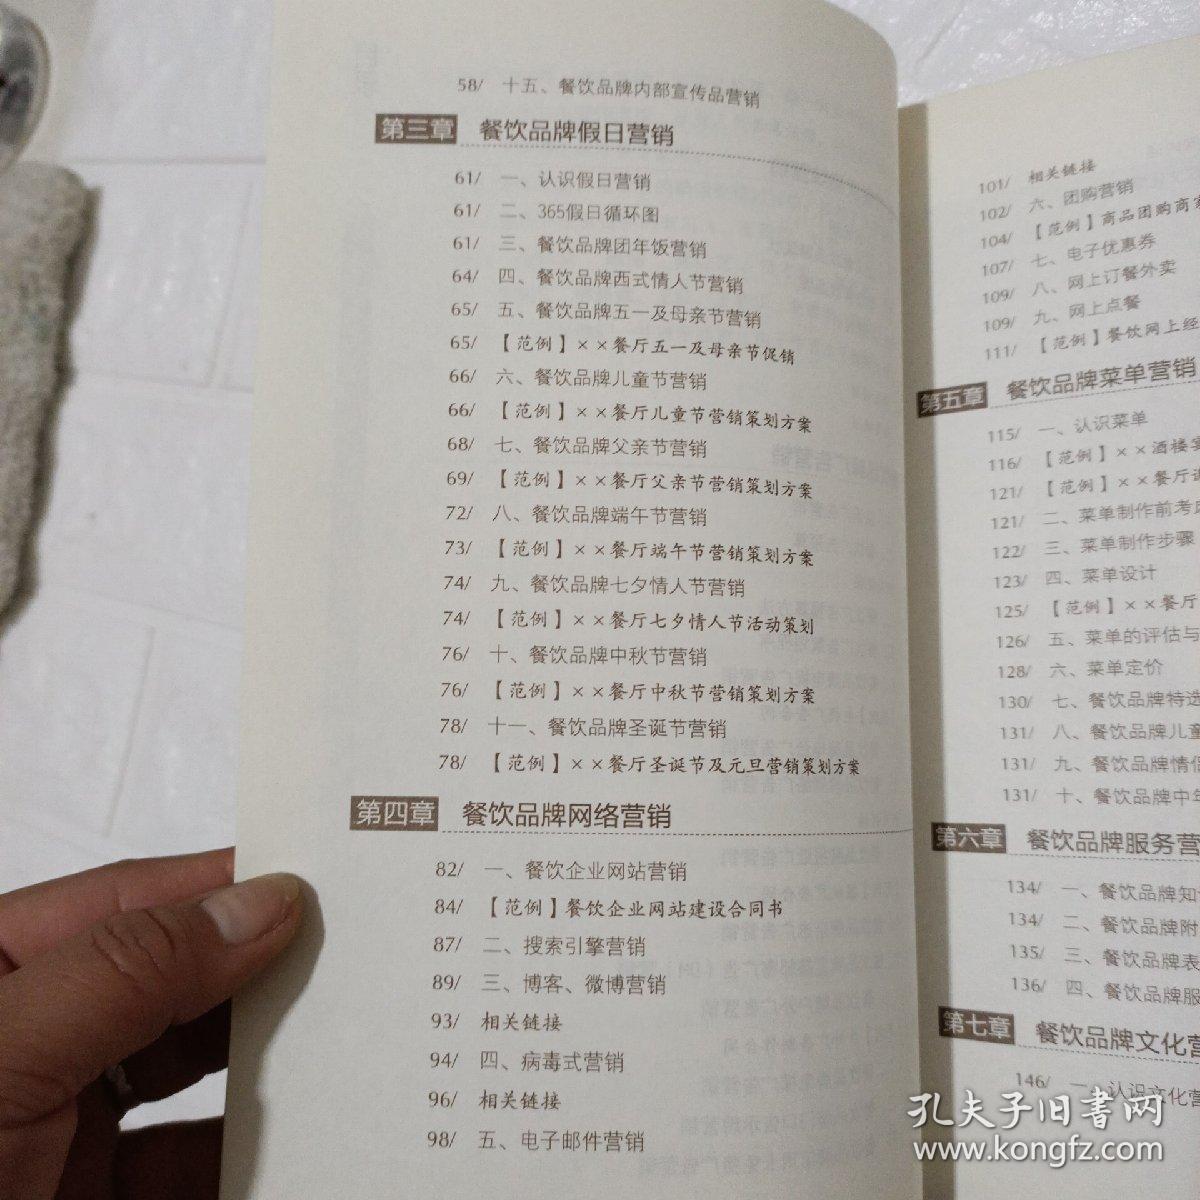 58/ 十五、餐饮品牌内部宣传品营销
第三章 餐饮品牌假日营销
61/ 一、认识假日营销
61/ 二、365假日循环图
61/ 三、餐饮品牌团年饭营销
64/ 四、餐饮品牌西式情人节营销
65/ 五、餐饮品牌五一及母亲节营销
65/ 【范例】××餐厅五一及母亲节促销
66/ 六、餐饮品牌儿童节营销
66/ 【范例】××餐厅儿童节营销策划方案
68/ 七、餐饮品牌父亲节营销
69/ 【范例】××餐厅父亲节营销策划方案
72/ 八、餐饮品牌端午节营销
73/ 【范例】××餐厅端午节营销策划方案
74/ 九、餐饮品牌七夕情人节营销
74/ 【范例】××餐厅七夕情人节活动策划
76/ 十、餐饮品牌中秋节营销
76/ 【范例】××餐厅中秋节营销策划方案
78/ 十一、餐饮品牌圣诞节营销
78/ 【范例】××餐厅圣诞节及元旦营销策划方案
第四章 餐饮品牌网络营销
82/ 一、餐饮企业网站营销
84/ 【范例】餐饮企业网站建设合同书
87/ 二、搜索引擎营销
89/ 三、博客、微博营销
93/ 相关链接
94/ 四、病毒式营销
96/ 相关链接
98/ 五、电子邮件营销
101/ 相关链接
102/ 六、团购营销
104/ 【范例】商品团购商家
107/ 七、电子优惠券
109/ 八、网上订餐外卖
109/ 九、网上点餐
111/ 【范例】餐饮网上经
第五章 餐饮品牌菜单营销
115/ 一、认识菜单
116/ 【范例】××酒楼
121/ 【范例】××餐厅
121/ 二、菜单制作前考虑
122/ 三、菜单制作步骤
123/ 四、菜单设计
125/ 【范例】××餐厅
126/ 五、菜单的评估与
128/ 六、菜单定价
130/ 七、餐饮品牌特选
131/ 八、餐饮品牌儿童
131/ 九、餐饮品牌情侣
131/ 十、餐饮品牌中年
第六章 餐饮品牌服务营
134/ 一、餐饮品牌知
134/ 二、餐饮品牌附
135/ 三、餐饮品牌表
136/ 四、餐饮品牌服
第七章 餐饮品牌文化营
146/ 一、认识文化营
孔夫子旧书网
www.kongfz.com